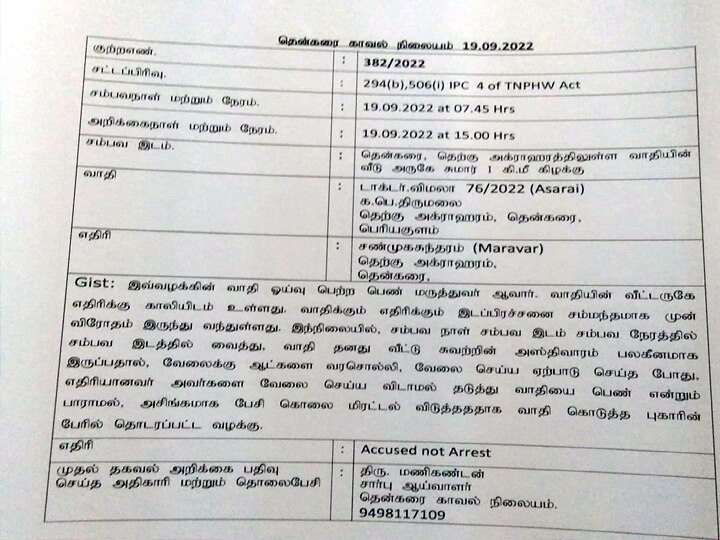 தென்கரை காவல் நிலையம் 19.09.2022
குற்றஎண். : 382/2022
சட்டப்பிரிவு. : 294(b),506(i) IPC 4 of TNPHW Act
சம்பவநாள் மற்றும் நேரம். : 19.09.2022 at 07.45 Hrs
அறிக்கைநாள் மற்றும் நேரம். : 19.09.2022 at 15.00 Hrs
சம்பவ இடம். : தென்கரை, தெற்கு அக்ராஹரத்திலுள்ள வாதியின்
வீடு அருகே சுமார் 1 கி.மீ கிழக்கு
வாதி : டாக்டர்.விமலா 76/2022 (Asarai)
க.பெ.திருமலை
தெற்கு அக்ராஹரம், தென்கரை,
பெரியகுளம்
எதிரி : சண்முகசுந்தரம் (Maravar)
தெற்கு அக்ராஹரம்,
தென்கரை,
Gist: இவ்வழக்கின் வாதி ஓய்வு பெற்ற பெண் மருத்துவர் ஆவார். வாதியின் வீட்டருகே
எதிரிக்கு காலியிடம் உள்ளது. வாதிக்கும் எதிரிக்கும் இடப்பிரச்சனை சம்மந்தமாக முன்
விரோதம் இருந்து வந்துள்ளது. இந்நிலையில், சம்பவ நாள் சம்பவ இடம் சம்பவ நேரத்தில்
சம்பவ இடத்தில் வைத்து, வாதி தனது வீட்டு சுவற்றின் அஸ்திவாரம் பலகீனமாக
இருப்பதால், வேலைக்கு ஆட்களை வரசொல்லி, வேலை செய்ய ஏற்பாடு செய்த போது,
எதிரியானவர் அவர்களை வேலை செய்ய விடாமல் தடுத்து வாதியை பெண் என்றும்
பாராமல், அசிங்கமாக பேசி கொலை மிரட்டல் விடுத்தததாக வாதி கொடுத்த புகாரின்
பேரில் தொடரப்பட்ட வழக்கு.
எதிரி : Accused not Arrest
முதல் தகவல் அறிக்கை பதிவு : திரு. மணிகண்டன்
செய்த அதிகாரி மற்றும் தொலைபேசி சார்பு ஆய்வாளர்
தென்கரை காவல் நிலையம்.
9498117109